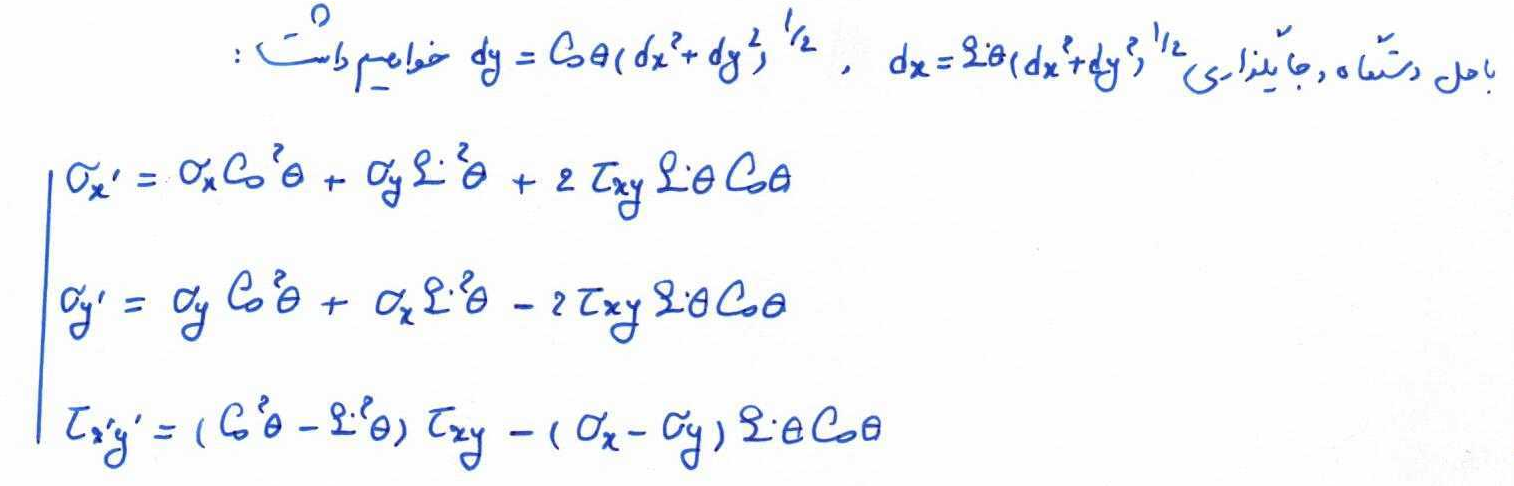 با حل دستگاه و جایگذاری dx = Sinθ(dx²+dy²)^1/2 , dy = Cosθ(dx²+dy²)^1/2 خواهیم داشت :
σx' = σx Cos²θ + σy Sin²θ + 2 τxy Sinθ Cosθ
σy' = σy Cos²θ + σx Sin²θ - 2 τxy Sinθ Cosθ
τx'y' = (Cos²θ - Sin²θ) τxy - (σx - σy) Sinθ Cosθ